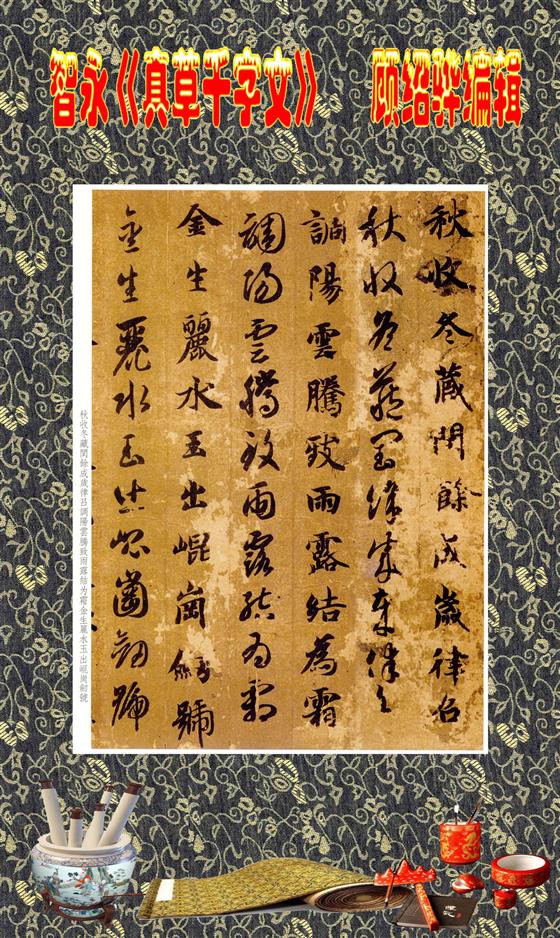 智永《真草千字文》 顾绍骅编辑
秋收冬藏閏餘成歲律召
秋收冬藏閏餘成歲律召
調陽雲騰致雨露結為霜
調陽雲騰致雨露結為霜
金生麗水玉出崐崗劒號
金生麗水玉出崐崗劒號
秋收冬藏閏餘成歲律呂調陽雲騰致雨露結为霜金生麗水玉出崐崗劒號